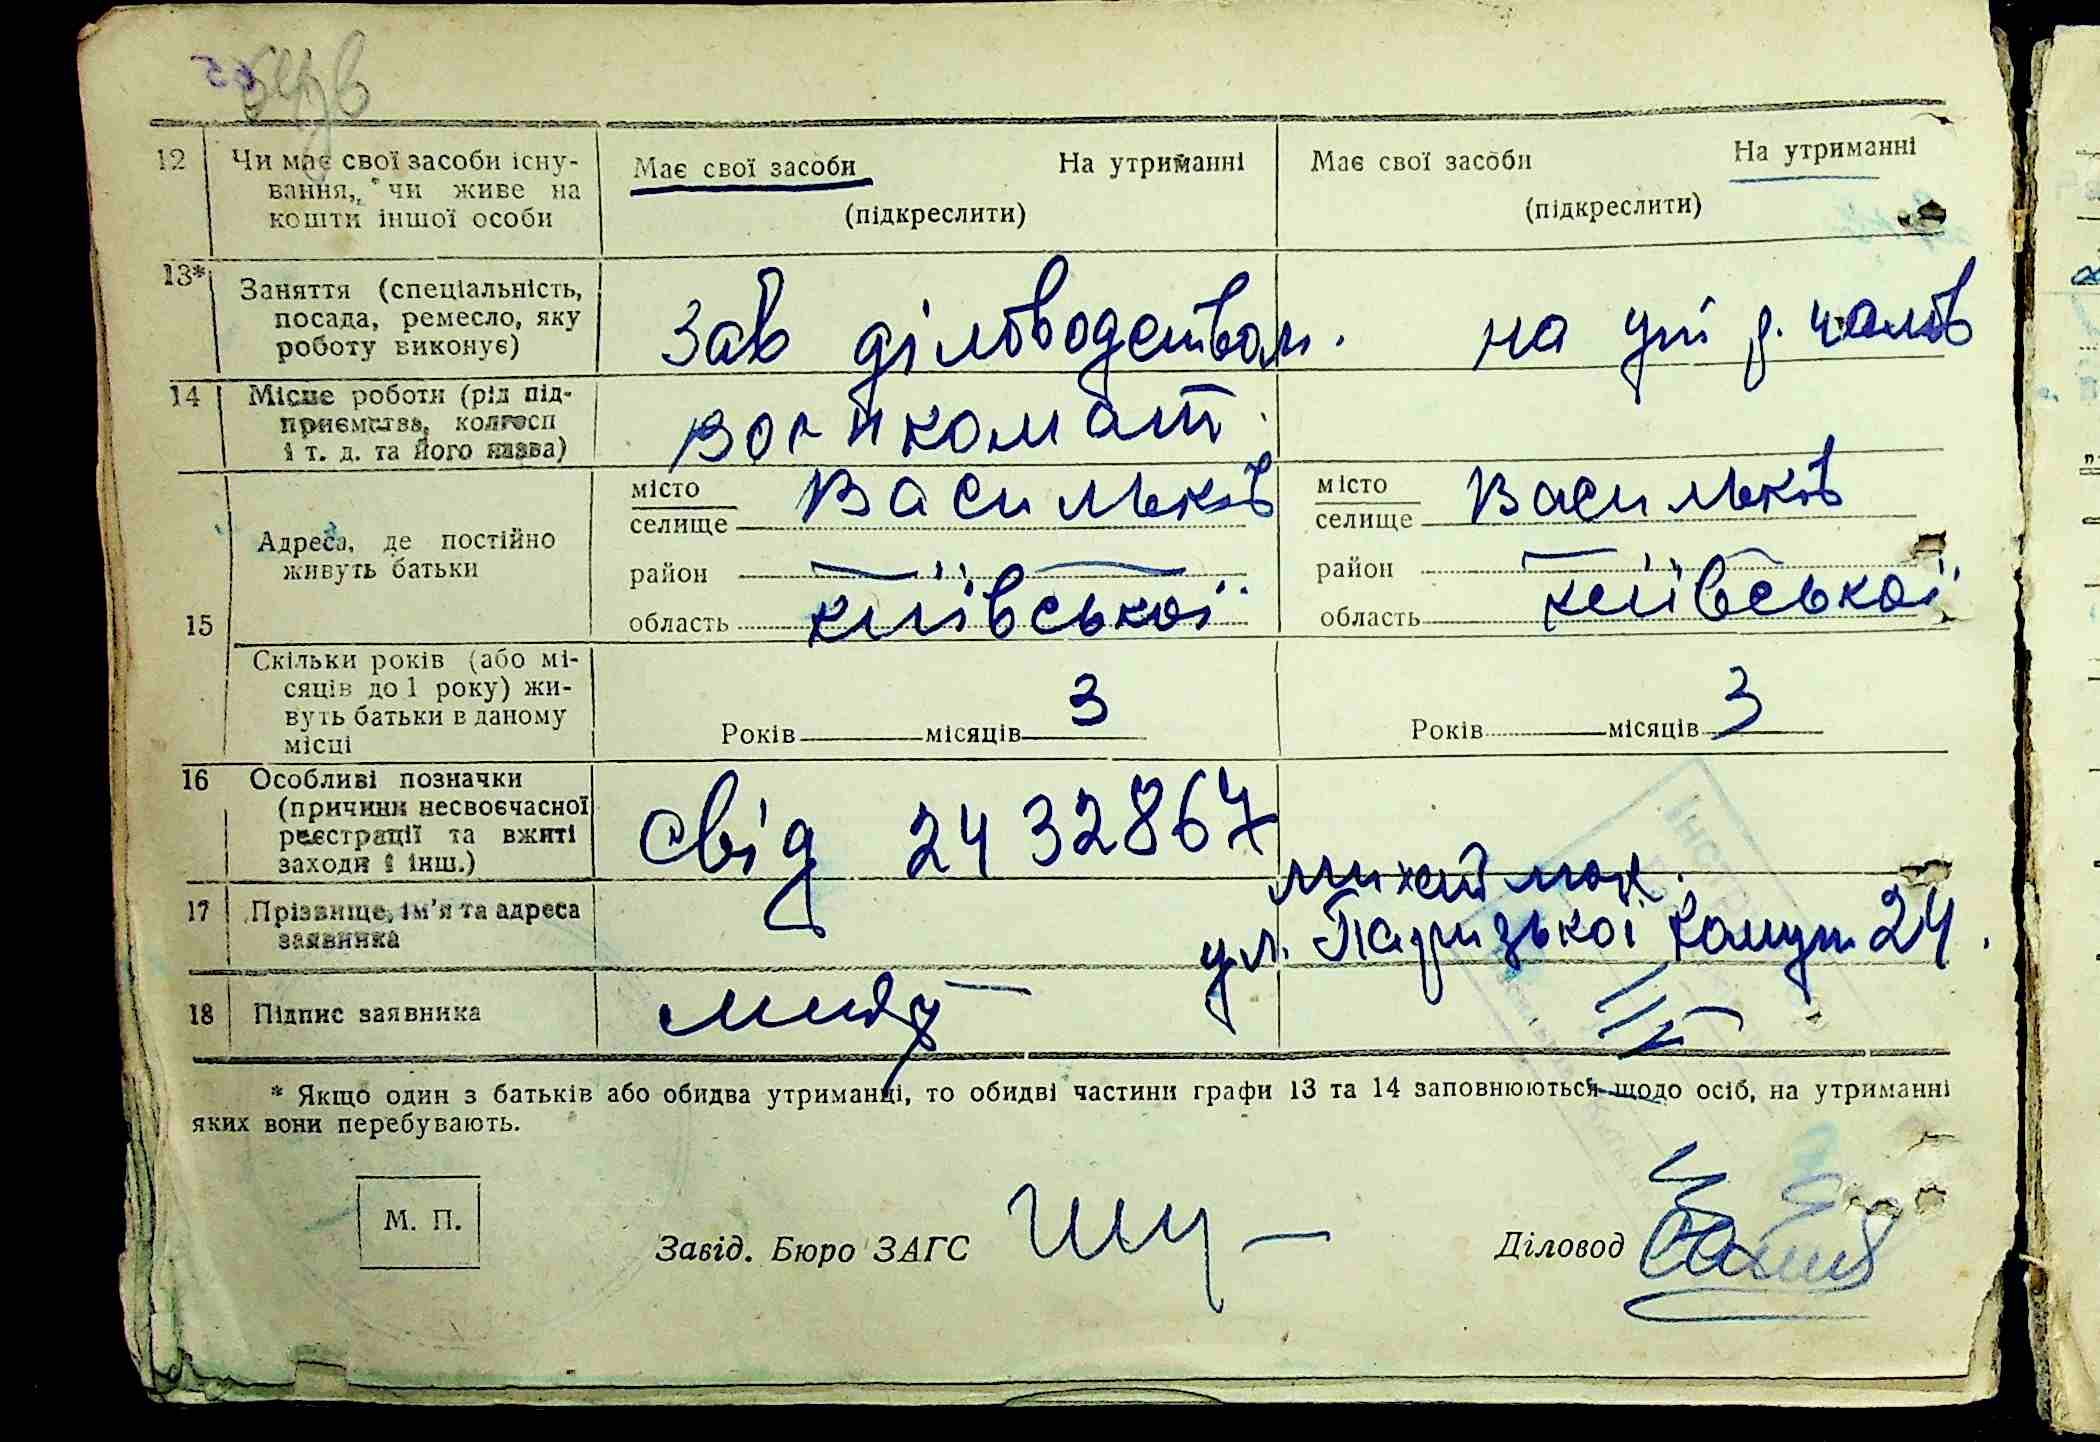 12 Чи має свої засоби існу-
вання, чи живе на
кошти іншої особи
Має свої засоби На утриманні
(підкреслити)
Має свої засоби На утриманні
(підкреслити)
13* Заняття (спеціальність,
посада, ремесло, яку
роботу виконує)
Зав діловодством. на ут
14 Місце роботи (рід під-
приємства, колгосп
і т. д. та його назва)
Воєнкомат.
15 Адреса, де постійно
живуть батьки
місто Васильків
селище
район —
область Київської
місто Васильків
селище
район —
область Київської
Скільки років (або мі-
сяців до 1 року) жи-
вуть батьки в даному
місці
Років місяців 3
Років місяців 3
16 Особливі позначки
(причини несвоєчасної
реєстрації та вжиті
заходи і інш.)
Свід 2432867
17 Прізвище, ім'я та адреса
заявника
ул. Паризької Комун 24.
18 Підпис заявника
* Якщо один з батьків або обидва утриманці, то обидві частини графи 13 та 14 заповнюються щодо осіб, на утриманні
яких вони перебувають.
М. П.
Завід. Бюро ЗАГС
Діловод